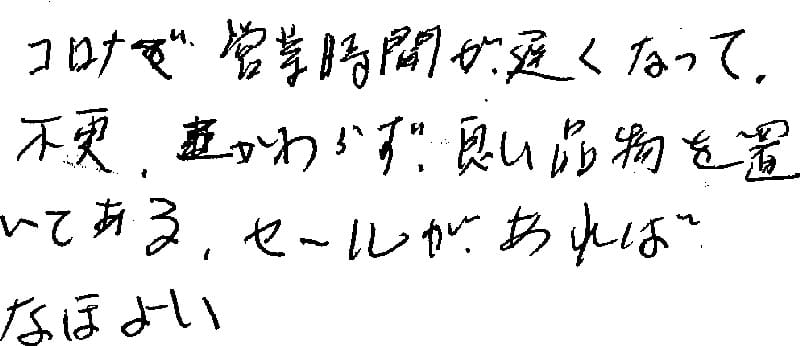 コロナで営業時間が遅くなって、
不便、かわらず、良い品物を置
いてある、セールがあれば
なほよい